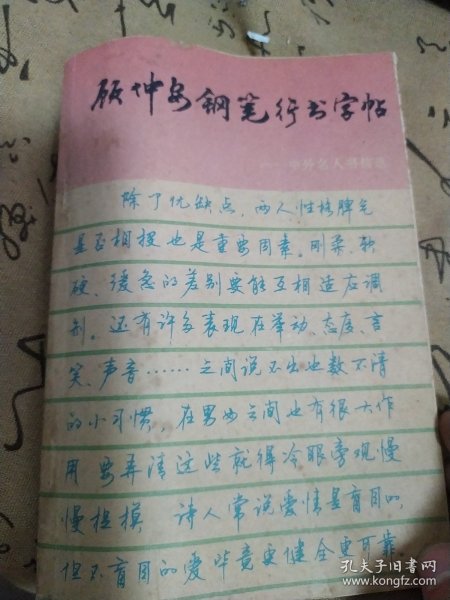 顾仲安钢笔行书字帖
——中外名人书信选
除了优缺点，两人性格脾气
是否相投也是重要因素。刚柔、软
硬、缓急的差别要能互相适应调
剂。还有许多表现在举动、态度、言
笑、声音……之间说不出也数不清
的小习惯，在男女之间也有很大作
用 要弄清这些就得冷眼旁观慢
慢捉摸 诗人常说爱情是盲目的，
但不盲目的爱毕竟更健全更可靠
孔夫子旧书网
www.kongfz.com